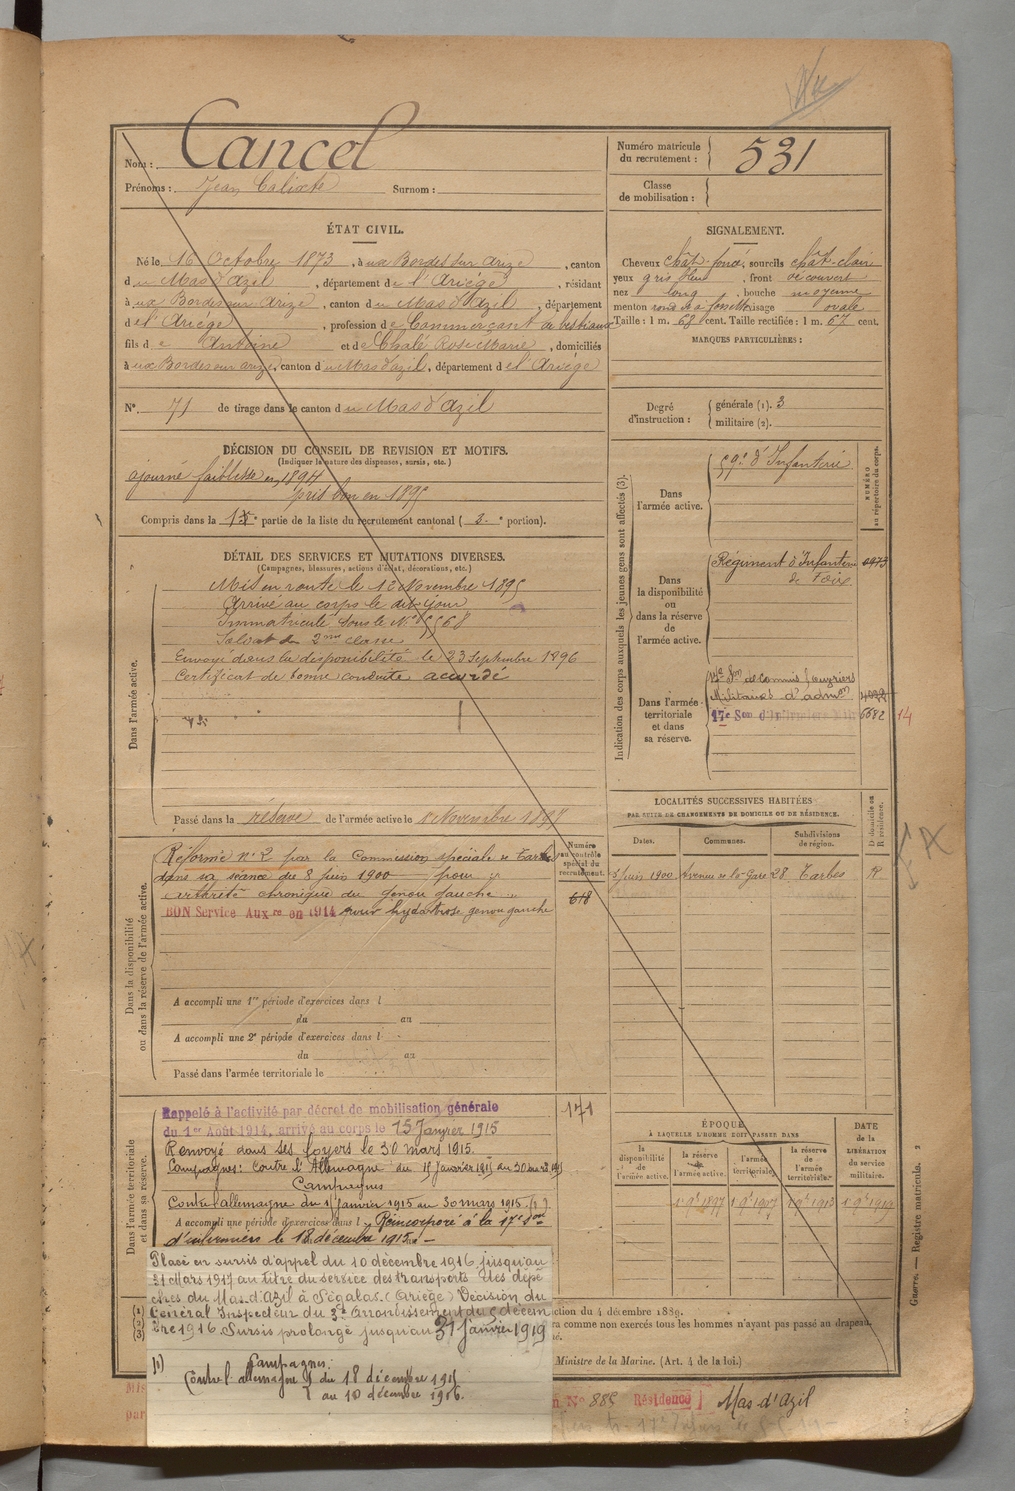 Nom : Cancel
Prénoms : Jean Calixte Surnom :
Numéro matricule du recrutement : 531
Classe de mobilisation :
ÉTAT CIVIL.
Né le 16 Octobre 1873, à ux Bordes sur Arize, canton
du Mas d'Azil, département de l'Ariège, résidant
à ux Bordes sur Arize, canton du Mas d'Azil, département
de l'Ariège, profession de Commerçant de bestiaux
fils de Antoine et de Chalé Rose Marie, domiciliés
à ux Bordes sur Arize, canton du Mas d'azil, département de l'Ariège
N° 71 de tirage dans le canton du Mas d'Azil
SIGNALEMENT.
Cheveux chât-foncé, sourcils chât-clair
yeux gris bleu, front découvert
nez long, bouche moyenne
menton rond et à fossette visage ovale
Taille : 1 m. 63 cent. Taille rectifiée : 1 m. 67 cent.
MARQUES PARTICULIÈRES :
Degré d'instruction : générale (1). 3
militaire (2).
DÉCISION DU CONSEIL DE REVISION ET MOTIFS.
(Indiquer la nature des dispenses, sursis, etc.)
ajourné faiblesse en 1894
pris bon en 1895
Compris dans la 1re partie de la liste du recrutement cantonal ( 3e portion).
DÉTAIL DES SERVICES ET MUTATIONS DIVERSES.
(Campagnes, blessures, actions d'éclat, décorations, etc.)
Dans l'armée active.
Mis en route le 12 Novembre 1895
Arrivé au corps le dit jour
Immatriculé sous le N° 5568
Soldat de 2me classe
Envoyé dans la disponibilité le 23 Septembre 1896
Certificat de bonne conduite accordé
Passé dans la réserve de l'armée active le 1r Novembre 1897
Indication des corps auxquels les jeunes gens sont affectés (3).
NUMÉRO au répertoire du corps.
Dans l'armée active.
59e d'Infanterie
Dans la disponibilité ou dans la réserve de l'armée active.
Régiment d'Infanterie 0973
de Foix
Dans l'armée territoriale et dans sa réserve.
17e Son de Commis & ouvriers
Militaires d'admon
17e Son d'Infirmiers 6682 14
LOCALITÉS SUCCESSIVES HABITÉES
PAR SUITE DE CHANGEMENTS DE DOMICILE OU DE RÉSIDENCE.
Dates. Communes. Subdivisions de région. D. domicile ou R. résidence.
5 juin 1900 Avenue de la Gare 28 Tarbes R
Dans la disponibilité ou dans la réserve de l'armée active.
Numéro au contrôle spécial du recrutement.
Réformé n° 2 par la Commission spéciale de Tarbes
dans sa séance du 8 juin 1900 pour "
arthrite chronique du genou gauche " 618
BON Service Auxre en 1914 pour hydarthrose genou gauche
A accompli une 1re période d'exercices dans l
du au
A accompli une 2e période d'exercices dans l
du au
Passé dans l'armée territoriale le
Dans l'armée territoriale et dans sa réserve.
Rappelé à l'activité par décret de mobilisation générale 171
du 1er Août 1914, arrivé au corps le 15 Janvier 1915
Renvoyé dans ses foyers le 30 mars 1915.
Campagnes : contre l'Allemagne du 15 janvier 1915 au 30 mars 1915
Campagnes
Contre l'allemagne du 15 janvier 1915 au 30 mars 1915
A accompli une période d'exercices dans l Réincorporé à la 17e Son
d'infirmiers le 18 décembre 1915
Placé en sursis d'appel du 10 décembre 1916 jusqu'au
31 Mars 1917 au titre du service des transports des dépê
ches du Mas-d'Azil à Ségalas (Ariège) Décision du
Général Inspecteur du 3e Arrondissement du 5 décem
bre 1916 Sursis prolongé jusqu'au 31 janvier 1919
(1) Campagnes :
Contre l'allemagne du 18 décembre 1915
au 10 décembre 1916.
ÉPOQUE
À LAQUELLE L'HOMME DOIT PASSER DANS
la disponibilité de l'armée active. la réserve de l'armée active. l'armée territoriale. la réserve de l'armée territoriale.
DATE de la LIBÉRATION du service militaire.
1 9e 1897 1 9e 1907 1 9e 1913 1 9e 1919
(1)
(2)
(3)
ction du 4 décembre 1889.
ra comme non exercés tous les hommes n'ayant pas passé au drapeau.
Ministre de la Marine. (Art. 4 de la loi.)
N° 885 Résidence Mas-d'Azil
Guerre. — Registre matricule. 2